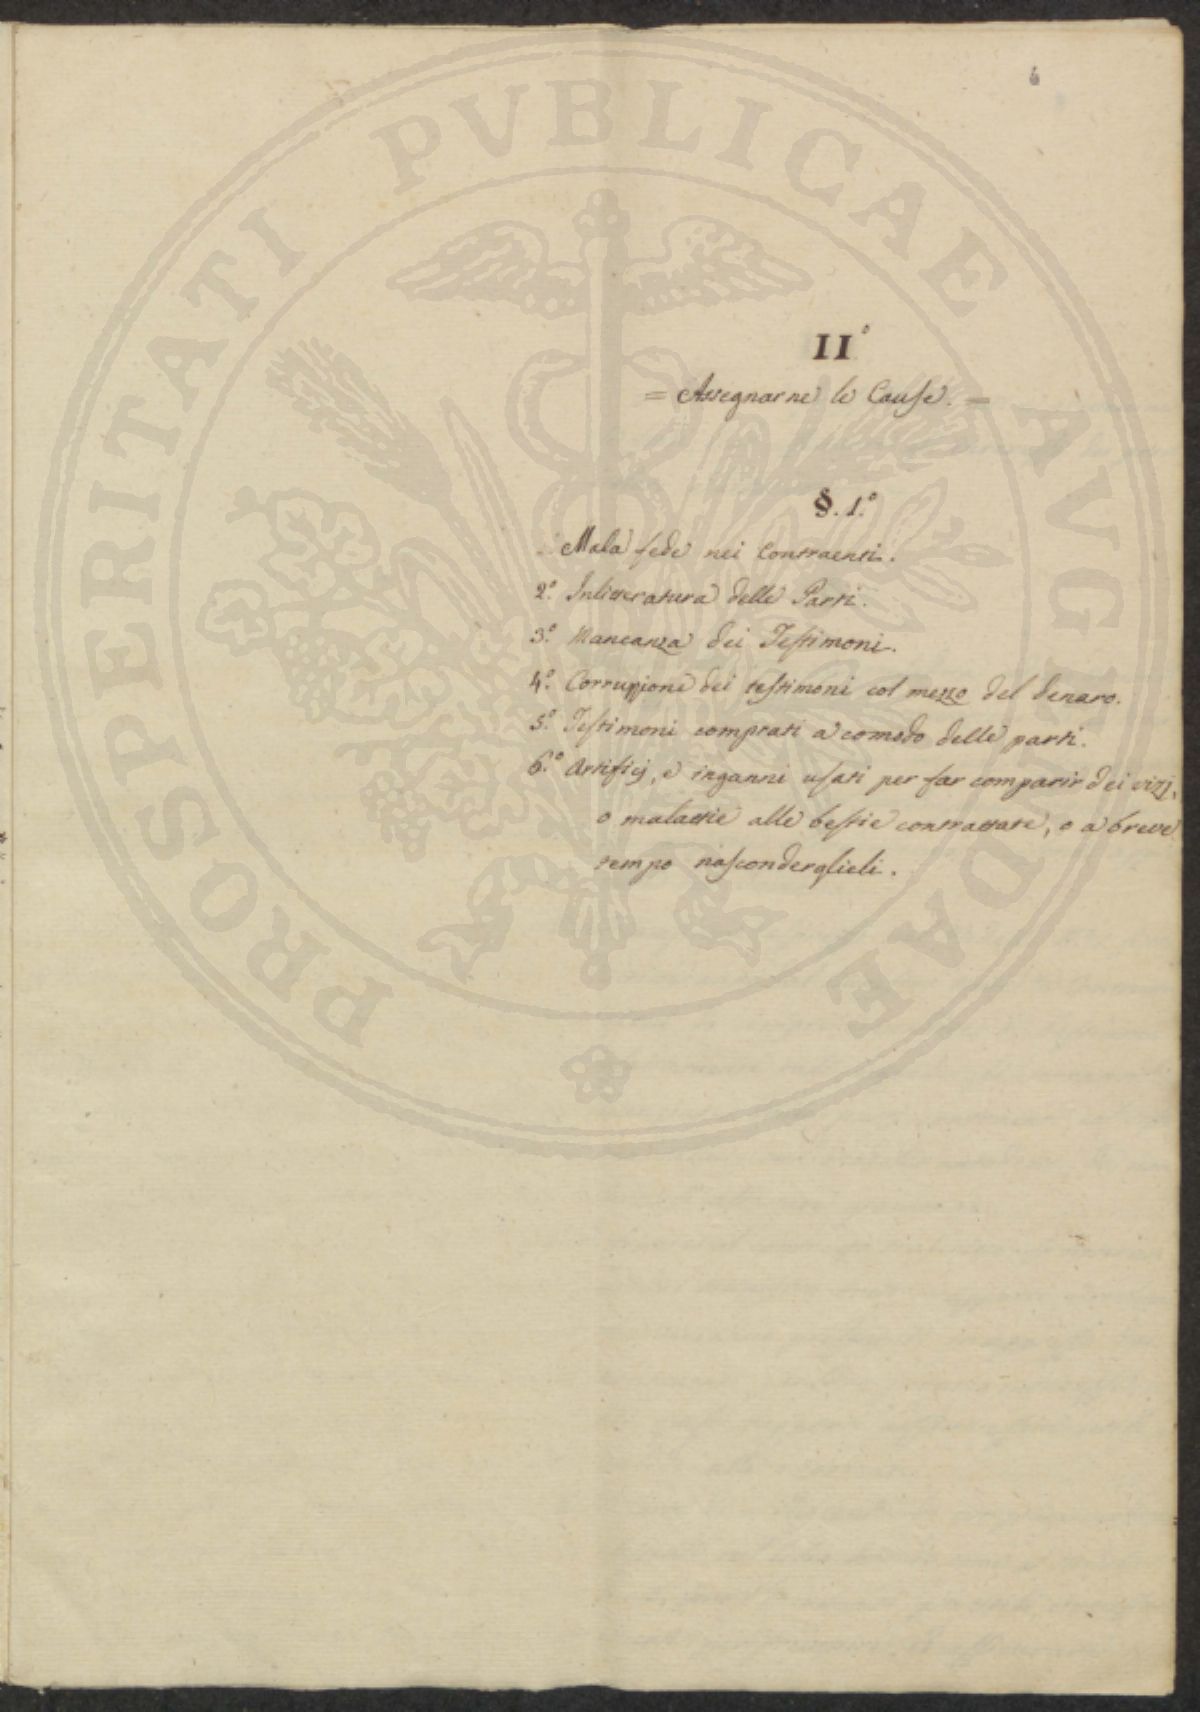 6
PROSPERITATI PVBLICAE AVGENDAE
II°
= Assegnarne le Cause. =
§. 1.°
Mala fede nei Contraenti.
2.° Inlitteratura delle Parti.
3.° Mancanza dei Testimoni.
4.° Corruzione dei testimoni col mezzo del denaro.
5.° Testimoni comprati a comodo delle parti.
6.° Artifici, e inganni usati per far comparir dei vizj,
o malattie alle bestie contrattate, o a breve
tempo nasconderglieli.